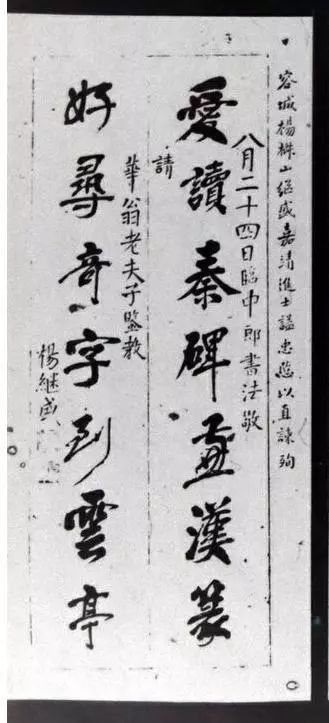 容城楊椒山繼盛嘉靖進士謚忠愍以直諫殉
八月二十四日臨中郎書法敬
愛讀秦碑漢篆
請
華翁老夫子鑒教
好尋奇字到雲亭
楊繼盛